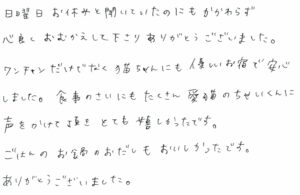 日曜日 お休みと聞いていたのにもかかわらず
心良く おむかえして下さり ありがとうございました。
ワンチャンだけでなく 猫ちゃんにも 優しいお宿で安心
しました。食事のさいにもたくさん 愛猫のちゃいくんに
声をかけて頂き とても 嬉しかったです。
ごはんの お鍋のおだしも おいしかったです。
ありがとうございました。